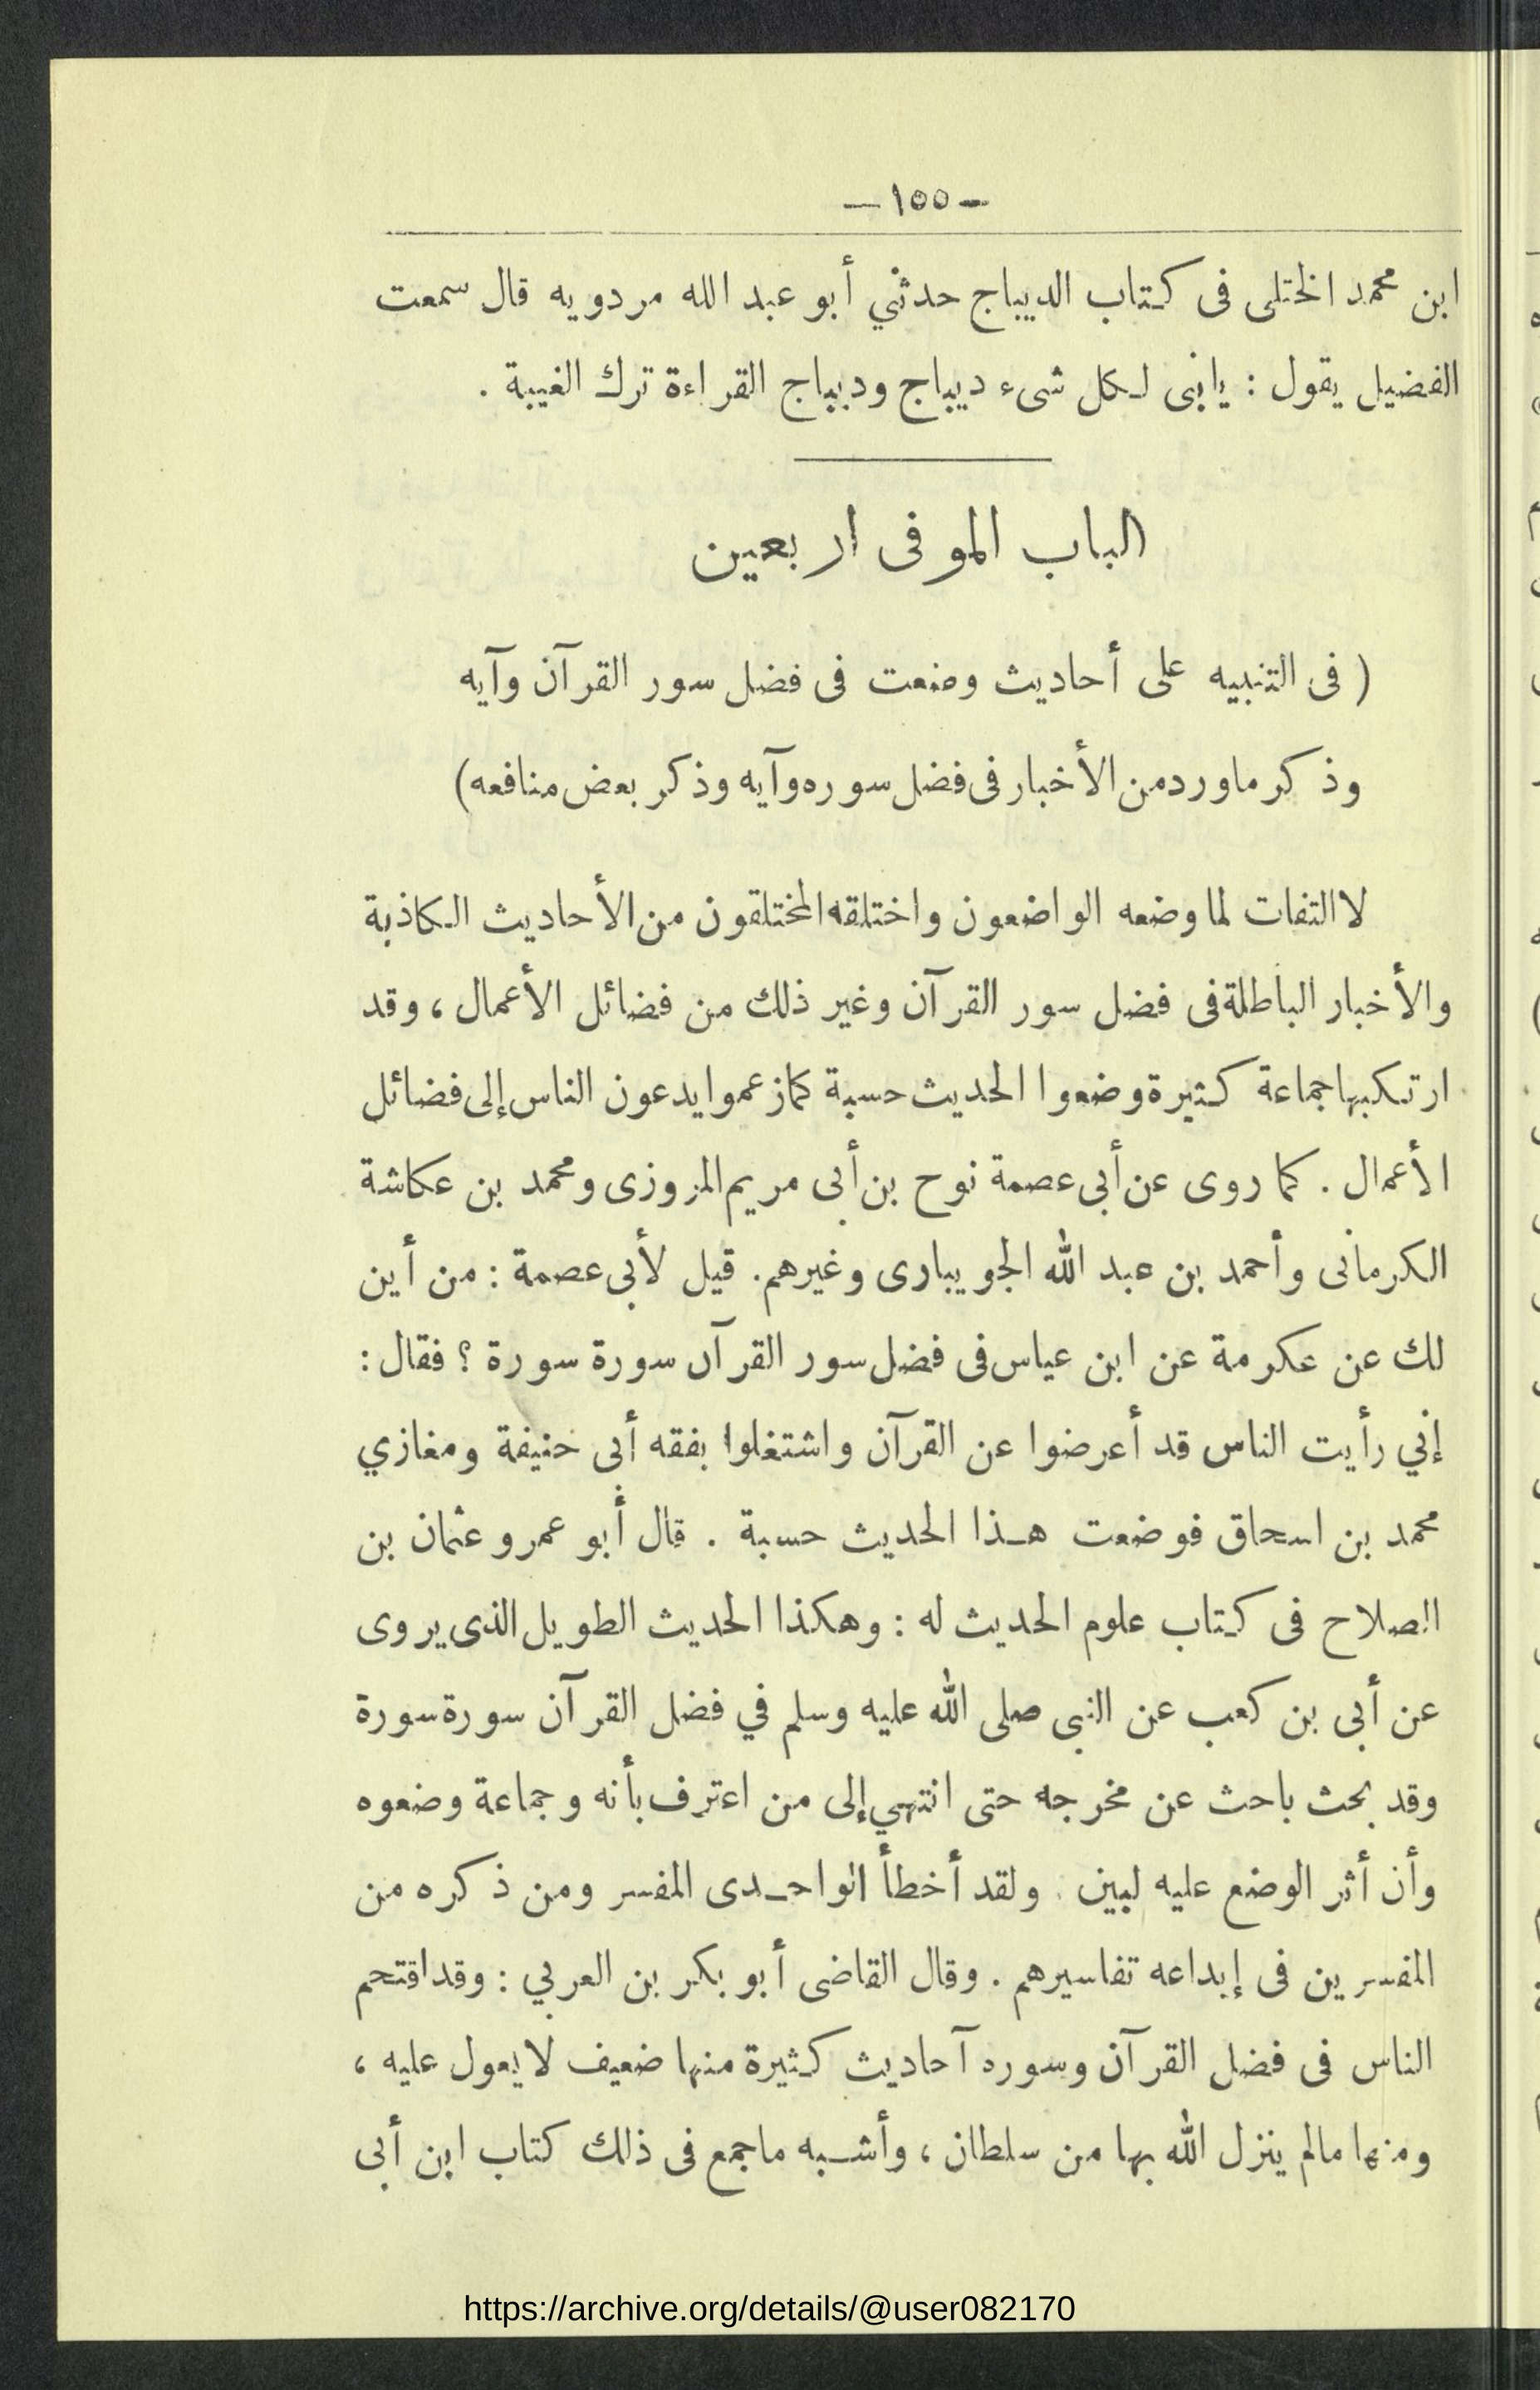 — ١٥٥ —
ابن محمد الختلى فى كتاب الديباج حدثني أبو عبد الله مردويه قال سمعت
الفضيل يقول : يابنى لكل شىء ديباج وديباج القراءة ترك الغيبة .
الباب الموفى اربعين
( فى التنبيه على أحاديث وضعت فى فضل سور القرآن وآيه
وذكر ماورد من الأخبار فى فضل سوره وآيه وذكر بعض منافعه)
لا التفات لما وضعه الواضعون واختلقه المختلقون من الأحاديث الكاذبة
والأخبار الباطلة فى فضل سور القرآن وغير ذلك من فضائل الأعمال ، وقد
ارتكبها جماعة كثيرة وضعوا الحديث حسبة كما زعموا يدعون الناس إلى فضائل
الأعمال . كما روى عن أبى عصمة نوح بن أبى مريم المزوزى ومحمد بن عكاشة
الكرمانى وأحمد بن عبد الله الجويبارى وغيرهم. قيل لأبى عصمة : من أين
لك عن عكرمة عن ابن عياس فى فضل سور القرآن سورة سورة ؟ فقال :
إني رأيت الناس قد أعرضوا عن القرآن واشتغلوا بفقه أبى حنيفة ومغازي
محمد بن اسحاق فوضعت هـذا الحديث حسبة . قال أبو عمرو عثمان بن
الصلاح فى كتاب علوم الحديث له : وهكذا الحديث الطويل الذى يروى
عن أبى بن كعب عن النبى صلى الله عليه وسلم في فضل القرآن سورة سورة
وقد بحث باحث عن مخرجه حتى انتهي إلى من اعترف بأنه وجماعة وضعوه
وأن أثر الوضع عليه لبين . ولقد أخطأ الواحـدى المفسر ومن ذكره من
المفسرين فى إبداعه تفاسيرهم . وقال القاضى أبو بكر بن العربي : وقد اقتحم
الناس فى فضل القرآن وسوره آحاديث كثيرة منها ضعيف لا يعول عليه ،
ومنها مالم ينزل الله بها من سلطان ، وأشـبه ماجمع فى ذلك كتاب ابن أبى
https://archive.org/details/@user082170